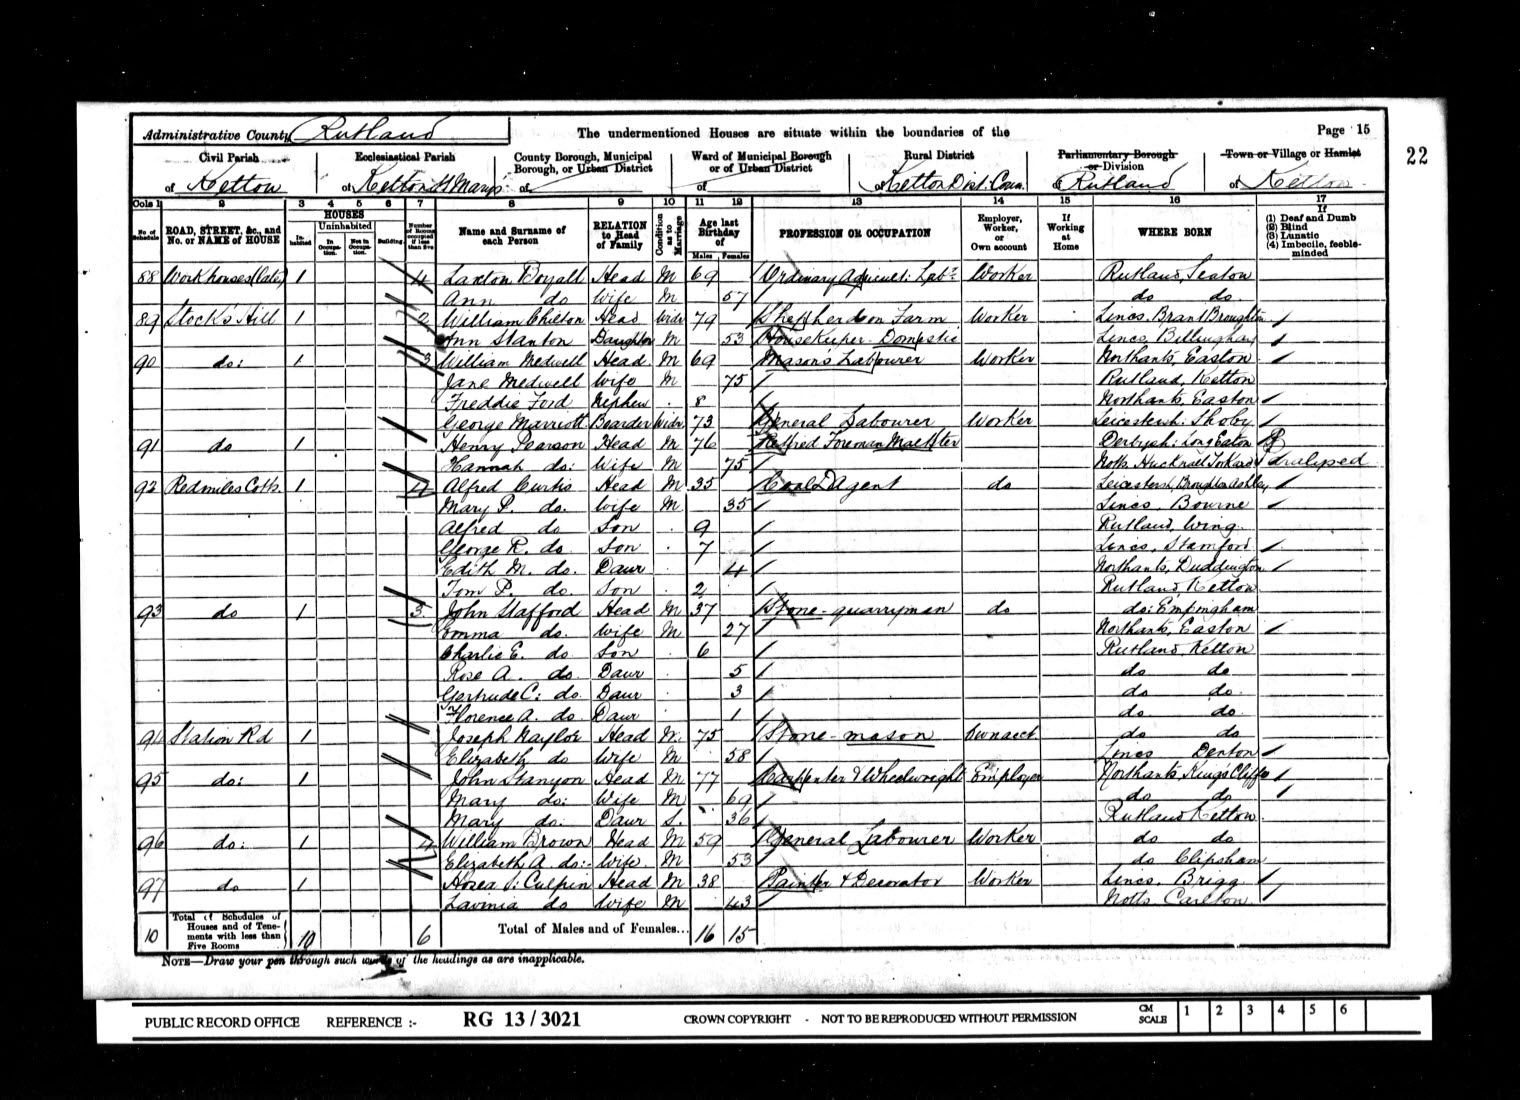 Administrative County Rutland The undermentioned Houses are situate within the boundaries of the Page 15
22
Civil Parish Ecclesiastical Parish County Borough, Municipal Borough, or Urban District Ward of Municipal Borough or of Urban District Rural District Parliamentary Borough or Division Town or Village or Hamlet
of Ketton of Ketton St Mary's of of of Ketton Dist. Coun. of Rutland of Ketton
Cols 1 2 3 4 5 6 7 8 9 10 11 12 13 14 15 16 17
No. of Schedule ROAD, STREET, &c., and No. or NAME of HOUSE HOUSES Inhabited Uninhabited In Occupation. Not in Occupation. Building. Number of Rooms occupied if less than five Name and Surname of each Person RELATION to Head of Family Condition as to Marriage Age last Birthday of Males Females PROFESSION OR OCCUPATION Employer, Worker, or Own account If Working at Home WHERE BORN If (1) Deaf and Dumb (2) Blind (3) Lunatic (4) Imbecile, feeble-minded
88 Workhouses (late) 1 4 Laxton Boyall Head M 69 Ordinary Agricult: Labr Worker Rutland, Seaton
Ann do Wife M 57 do do
89 Stock's Hill 1 2 William Chilton Head Widr 79 Shepherd on Farm Worker Lincs. Brant Broughton
Ann Stanton Daughter M 53 Housekeeper - Domestic Lincs, Billinghay
90 do: 1 3 William Medwell Head M 69 Mason's Labourer Worker Northants, Easton
Jane Medwell Wife M 75 Rutland, Ketton
Freddie Ford Nephew 8 Northants Easton
George Marriott Boarder Widr 73 General Labourer Worker Leicestersh: Shoby
91 do 1 Henry Pearson Head M 76 Retired Foreman Maltster Derbysh: Long Eaton
Hannah do: Wife M 75 Notts. Hucknall Torkard Paralysed
92 Redmiles Cotts. 1 4 Alfred Curtis Head M 35 Coal Agent do Leicestersh, Broughton Astley
Mary P. do. Wife M 35 Lincs, Bourne
Alfred do Son 9 Rutland, Wing
George R. do Son 7 Lincs, Stamford
Edith M. do. Daur 4 Northants, Duddington
Tom P. do. Son 2 Rutland, Ketton
93 do 1 3 John Stafford Head M 37 Stone-quarryman do do: Empingham
Emma do. Wife M 27 Northants, Easton
Charlie E. do Son 6 Rutland, Ketton
Rose A. do Daur 5 do do
Gertrude C: do Daur 3 do do
Florence A. do Daur 1 do do
94 Station Rd 1 Joseph Naylor Head M. 75 Stone-mason Ownacct do do
Elizabeth do Wife M 58 Lincs Denton
95 do: 1 John Stanyon Head M 77 Carpenter & Wheelwright Employer Northants, King's Cliffe
Mary do: Wife M 69 do do
Mary do. Daur S. 36 Rutland Ketton
96 do: 1 4 William Brown Head M 59 General Labourer Worker do do
Elizabeth A. do:- Wife. M 53 do Clipsham
97 do 1 Hosea J: Culpin Head M 38 Painter & Decorator Worker Lincs, Brigg
Lavinia do Wife M 43 Notts Carlton
10 Total of Schedules of Houses and of Tenements with less than Five Rooms 10 6 Total of Males and of Females... 16 15
NOTE—Draw your pen through such words of the headings as are inapplicable.
PUBLIC RECORD OFFICE REFERENCE :- RG 13 / 3021 CROWN COPYRIGHT - NOT TO BE REPRODUCED WITHOUT PERMISSION CM SCALE 1 2 3 4 5 6